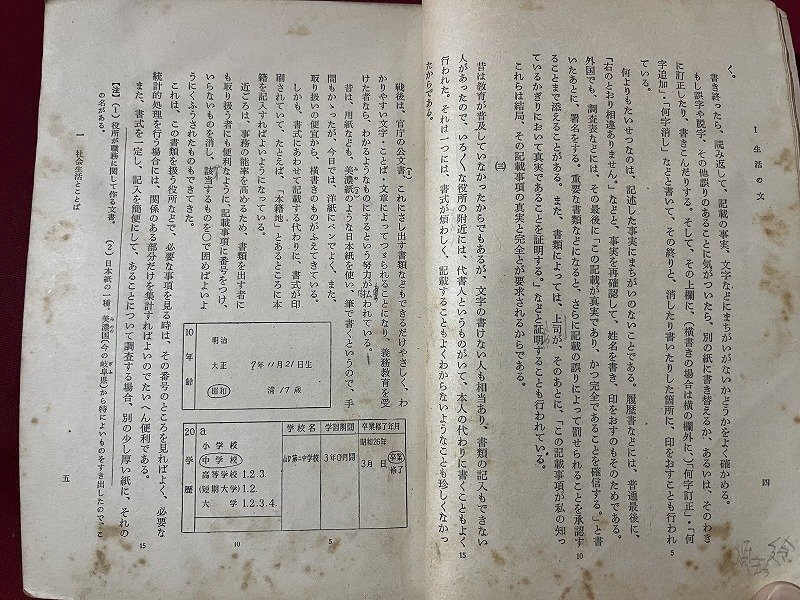 Ⅰ 生活の文
四
く。
書き終ったら、読み返して、記載の事実、文字などにまちがいがないかどうかをよく確かめる。
もし誤字や脱字、その他誤りのあることに気がついたら、別の紙に書き替えるか、あるいは、そのわき
に訂正したり、書きこんだりする。そして、その上欄に、（横書きの場合は横の欄外に、）「何字訂正」・「何
字追加」・「何字消し」などと書いて、その終りと、消したり書いたりした箇所に、印をおすことも行われ
ている。
何よりもたいせつなのは、記述した事実にまちがいのないことである。履歴書などには、普通最後に、
「右のとおり相違ありません。」などと、事実を再確認して、姓名を書き、印をおすのもそのためである。
外国でも、調査表などには、その最後に「この記載が真実であり、かつ完全であることを確信する。」と書
いたあとに、署名をする。重要な書類などになると、さらに記載の誤りによって罰せられることを承認す
ることまで添えることがある。また、書類によっては、上司が、そのあとに、「この記載事項が私の知っ
ているかぎりにおいて真実であることを証明する。」などと証明することも行われている。
これらは結局、その記載事項の真実と完全とが要求されるからである。
(三)
昔は教育が普及していなかったからでもあるが、文字の書けない人も相当あり、書類の記入もできない
人があったので、いろ〱な役所の附近には、代書人というものがいて、本人の代わりに書くこともよく
行われた。それは一つには、書式が煩わしく、記載することもよくわからないようなことも珍しくなかっ
たからである。
5
10
15
戦後は、官庁の公文書、これにさし出す書類などもできるだけやさしく、わ
かりやすい文字・ことば・文章によってつゞられることになり、義務教育を受
けた者なら、わかるようなものにするという努力が払われている。
昔は、用紙なども、美濃紙のような日本紙を使い、筆で書くというので、手
間もかゝったが、今日では、洋紙にペンでよく、また、
取り扱いの便宜から、横書きのものがふえてきている。
しかも、書式にあわせて記載する代わりに、書式が印
刷されていて、たとえば、「本籍地」とあるところに本
籍を記入すればよいようになっている。
近ごろは、事務の能率を高めるため、書類を出す者に
も取り扱う者にも便利なように、記載事項に番号をつけ、
いらないものを消し、該当するものを○で囲めばよいよ
うにくふうされたものもできてきた。
これは、この書類を扱う役所などで、必要な事項を見る時は、その番号のところを見ればよく、必要な
統計的処理を行う場合には、関係のある部分だけを集計すればよいのでたいへん便利である。
また、書式を一定し、記入を簡便にして、あることについて調査する場合、別の少し厚い紙に、それの
【注】（1）役所が職務に関して作る文書。 （2）日本紙の一種。美濃国（今の岐阜県）から特によいものをすき出したので、こ
の名がある。
10 年齢
明治
大正
昭和
9年11月21日生
満17歳
20 学歴
a
小学校
中学校
高等学校 1.2.3.
(短期大学)1.2.
大学 1.2.3.4.
学校名
学習期間
卒業修了年月
3年0月間
昭和25年
3月 日
卒業
修了
5
10
15
一 社会生活とことば
五